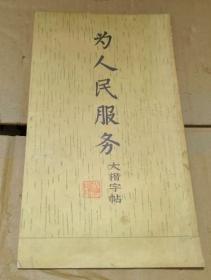 为人民服务
大楷字帖